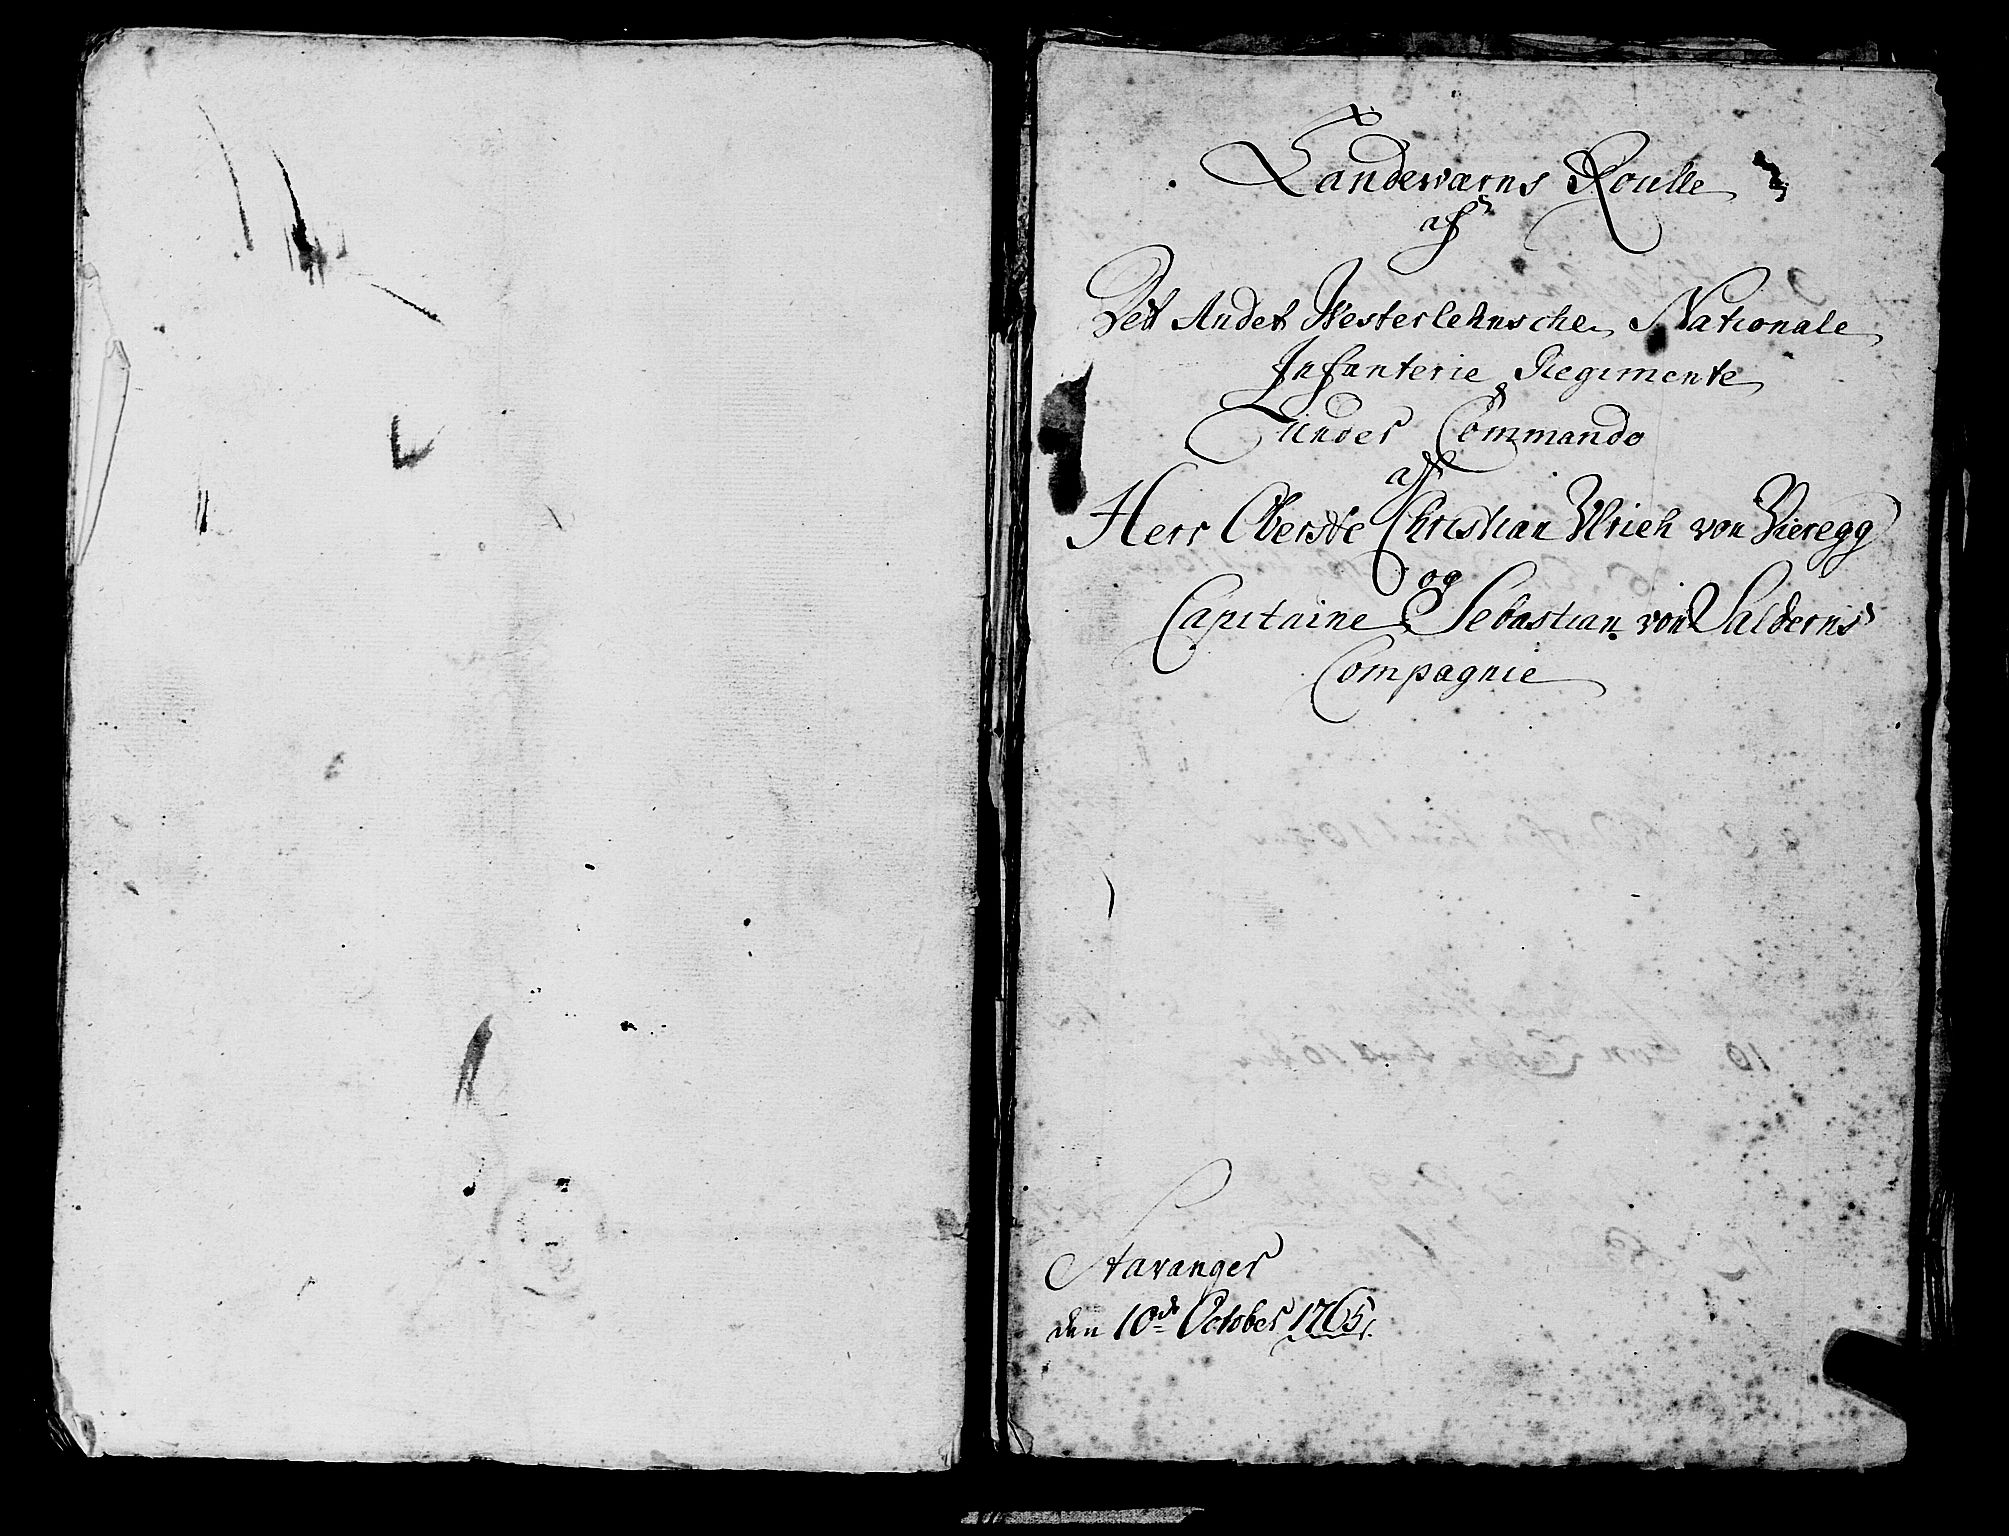 Landewærns Roulle
aff
Det Andet Westerlehnsche Nationale
Infanterie Regimente
under Commando
aff
Herr Oberste Christian Ulrich von Vieregg
og
Capitaine Sebastian von Salderns
Compagnie
Stavanger
den 10de October 1765.